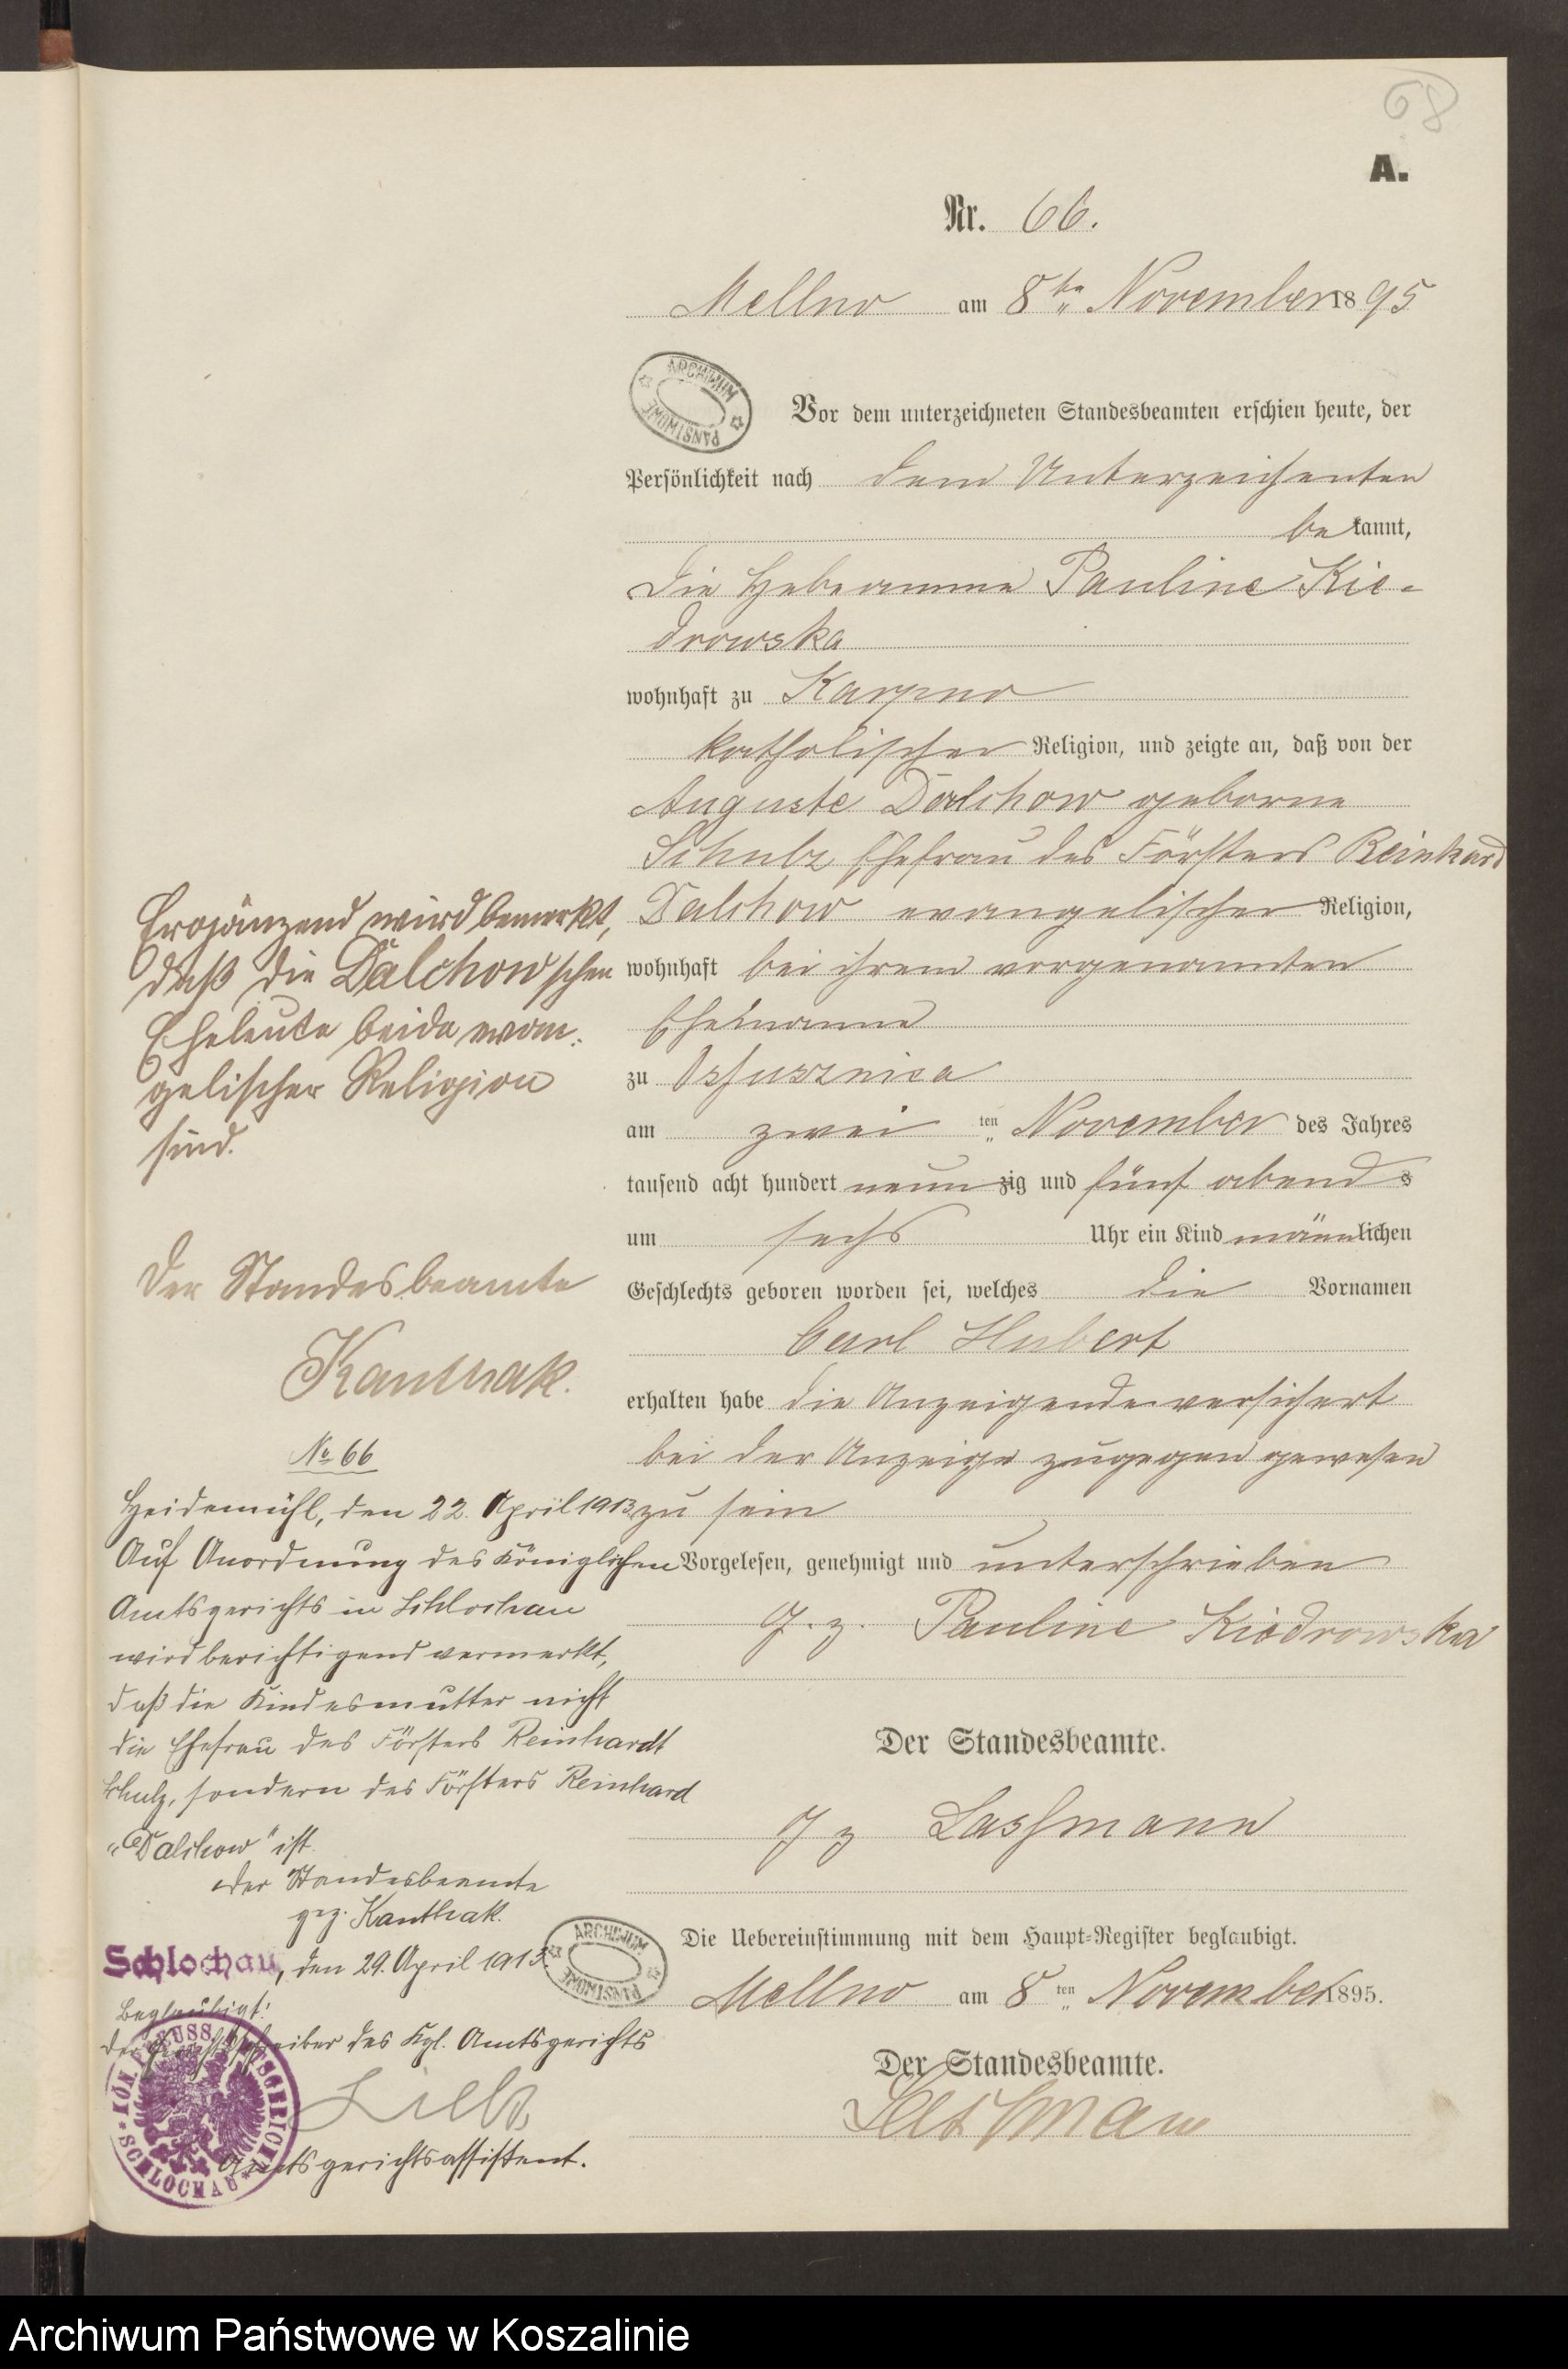 68
A.
Nr. 66.
Mellno am 8ten November 1895
ARCHIWUM PAŃSTWOWE
Vor dem unterzeichneten Standesbeamten erschien heute, der
Persönlichkeit nach dem Unterzeichenten
bekannt,
die Hebeamme Pauline Kie-
drowska
wohnhaft zu Karpno
katholischer Religion, und zeigte an, daß von der
Auguste Dalchow geborne
Schulz Ehefrau des Försters Reinhard
Dalchow evangelischer Religion,
wohnhaft bei ihrem vorgenannten
Ehemanne
zu
am zwei ten November des Jahres
tausend acht hundert neunzig und fünf abends
um sechs Uhr ein Kind männlichen
Geschlechts geboren worden sei, welches die Vornamen
Carl Hubert
erhalten habe die Anzeigende versichert
bei der Anzeige zugegen gewesen
zu sein
Vorgelesen, genehmigt und unterschrieben
g. z. Pauline Kiedrowska
Der Standesbeamte.
g z Lassmann
Die Uebereinstimmung mit dem Haupt-Register beglaubigt.
Mellno am 8ten November 1895.
Der Standesbeamte.
Lassmann
Ergänzend wird bemerkt,
daß die Dalchow'schen
Eheleute beide evan-
gelischer Religion
sind.
Der Standesbeamte
Kanthak.
No 66
Heidemühl, den 22. April 1913
Auf Anordnung des Königlichen
Amtsgerichts in Schlochau
wird berichtigend vermerkt,
daß die Kindesmutter nicht
die Ehefrau des Försters Reinhardt
Schulz, sondern des Försters Reinhard
„Dalchow" ist.
Der Standesbeamte
gez. Kanthak.
Schlochau, den 29. April 1913.
ARCHIWUM PAŃSTWOWE
Beglaubigt:
Der Gerichtsschreiber des Kgl. Amtsgerichts
KÖN. PREUSS. AMTSGERICHT * SCHLOCHAU *
Amtsgerichtsassistent.
Archiwum Państwowe w Koszalinie